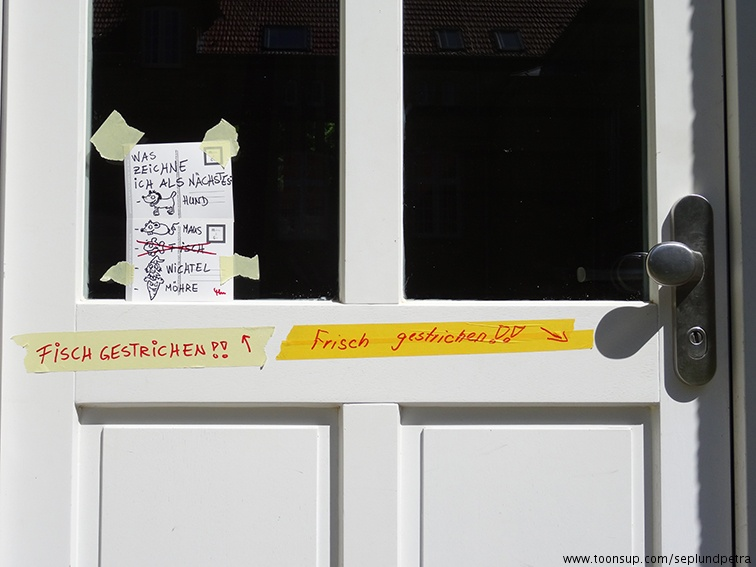 WAS
ZEICHNE
ICH ALS NÄCHSTES
- HUND
- MAUS
- FISCH
- WICHTEL
- MÖHRE
FISCH GESTRICHEN!! ↑
Frisch gestrichen!! ↘
www.toonsup.com/seplundpetra